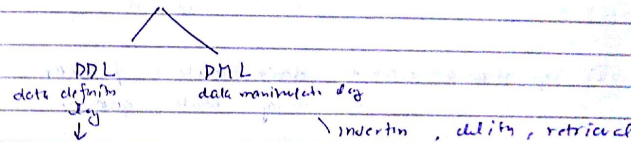 DDL DML
data definitn data manipulatn lag
lag
insertion, delitn, retrieval